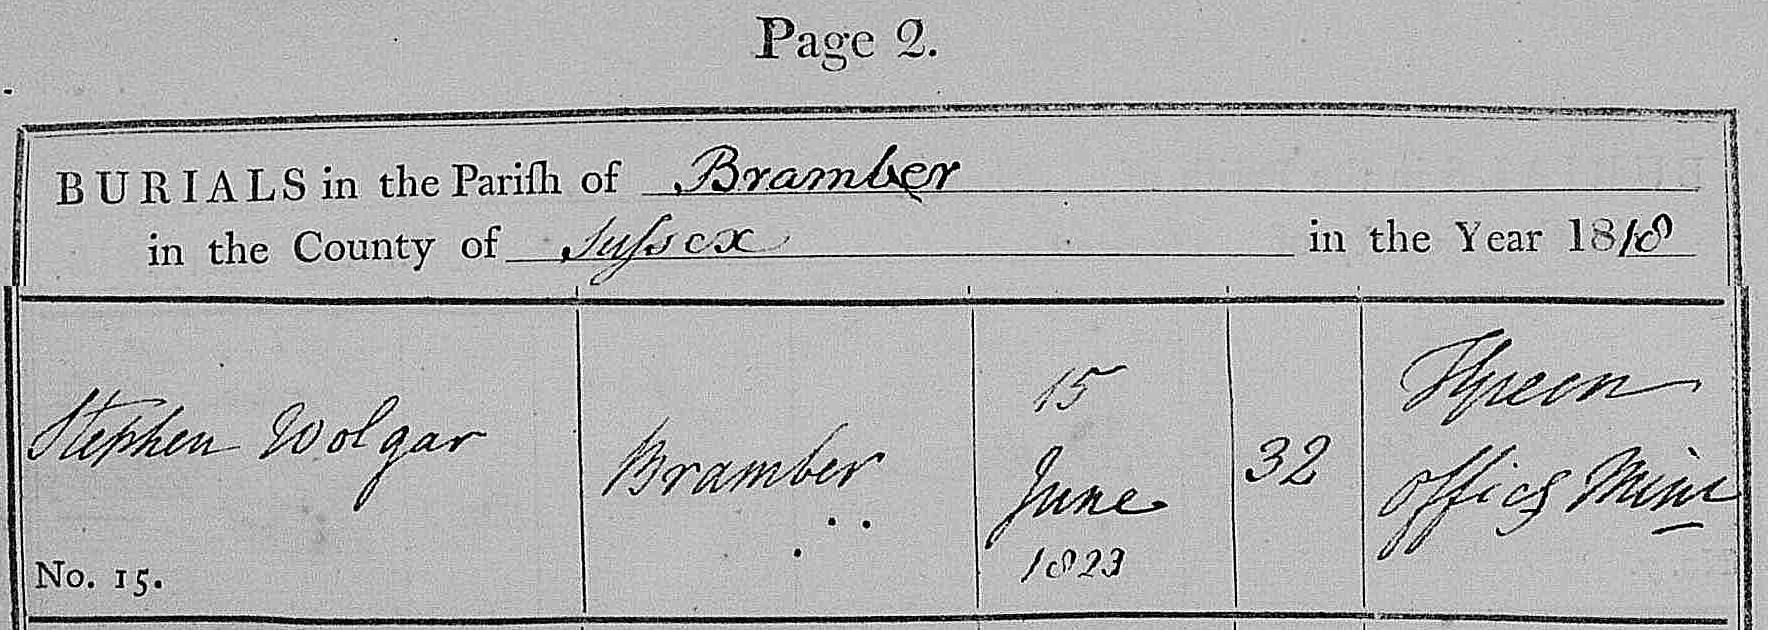 Page 2.
BURIALS in the Pariſh of Bramber
in the County of Suſsex in the Year 1818
Stephen Wolgar
No. 15.
Bramber
15
June
1823
32
offics Minr